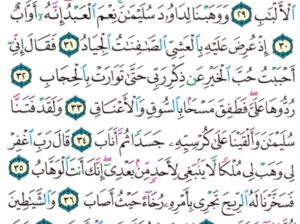 ٱلْأَلْبَٰبِ ٢٩ وَوَهَبْنَا لِدَاوُۥدَ سُلَيْمَٰنَ نِعْمَ ٱلْعَبْدُ إِنَّهُۥٓ أَوَّابٌ
٣٠ إِذْ عُرِضَ عَلَيْهِ بِٱلْعَشِىِّ ٱلصَّٰفِنَٰتُ ٱلْجِيَادُ ٣١ فَقَالَ إِنِّىٓ
أَحْبَبْتُ حُبَّ ٱلْخَيْرِ عَن ذِكْرِ رَبِّى حَتَّىٰ تَوَارَتْ بِٱلْحِجَابِ ٣٢
رُدُّوهَا عَلَىَّ فَطَفِقَ مَسْحًۢا بِٱلسُّوقِ وَٱلْأَعْنَاقِ ٣٣ وَلَقَدْ فَتَنَّا
سُلَيْمَٰنَ وَأَلْقَيْنَا عَلَىٰ كُرْسِيِّهِۦ جَسَدًا ثُمَّ أَنَابَ ٣٤ قَالَ رَبِّ ٱغْفِرْ
لِى وَهَبْ لِى مُلْكًا لَّا يَنۢبَغِى لِأَحَدٍ مِّنۢ بَعْدِىٓ إِنَّكَ أَنتَ ٱلْوَهَّابُ ٣٥
فَسَخَّرْنَا لَهُ ٱلرِّيحَ تَجْرِى بِأَمْرِهِۦ رُخَآءً حَيْثُ أَصَابَ ٣٦ وَٱلشَّيَٰطِينَ